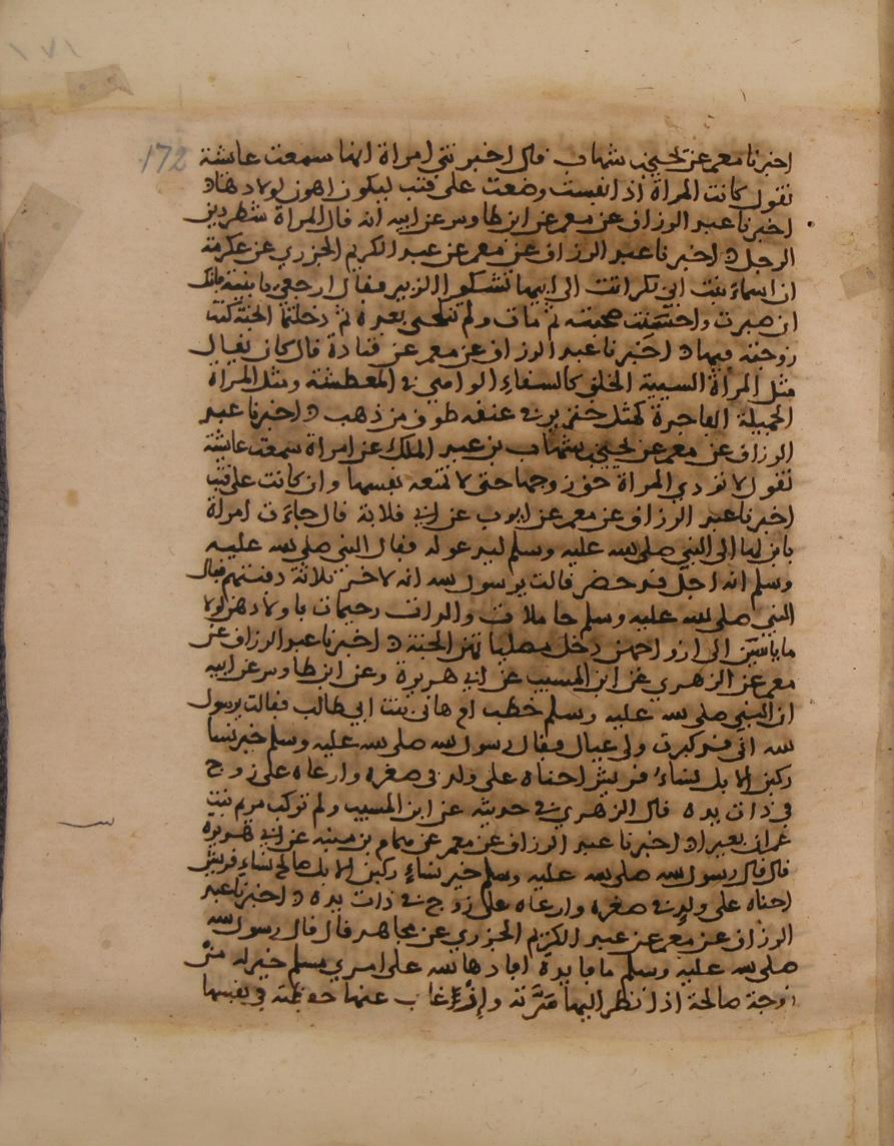 172
اخبرنا معمر عن يحيى بن شهاب قال اخبرتني امراة انها سمعت عائشة
تقول كانت المراة اذا نفست وضعت على قتب ليكون اهون لولادها
اخبرنا عبد الرزاق عن معمر عن ابن طاوس عن ابيه انه قال المراة شطر دين
الرجل اخبرنا عبد الرزاق عن معمر عن عبد الكريم الجزري عن عكرمة
ان اسماء بنت ابي بكر اتت الى ابيها تشكوا الزبير فقال ارجعي يا بنية فانك
ان صبرت واحسنت صحبته ثم مات ولم تنكحي بعده ثم دخلتما الجنة كنت
زوجته فيها اخبرنا عبد الرزاق عن معمر عن قتادة قال كان يقال
مثل المراة السيية الخلق كالسقاء الواهي في المعطشة ومثل المراة
الجميلة الفاجرة كمثل خنزير في عنقه طوق من ذهب اخبرنا عبد
الرزاق عن معمر عن يحيى بن شهاب بن عبد الملك عن امراة سمعت عائشة
تقول لا تودي المراة حق زوجها حتى لا تمنعه نفسها وان كانت على قتب
اخبرنا عبد الرزاق عن معمر عن ايوب عن ابي قلابة قال جاءت امراة
بابن لها الى النبي صلى الله عليه وسلم ليدعو له فقال النبي صلى الله عليه
وسلم انه اجل قد حضر قالت يرسول الله انه لاخر ثلاثة دفنتهم فقال
النبي صلى الله عليه وسلم حاملات والدات رحيمات باولادهن لولا
ما ياتين الى ازواجهن دخل مصلياتهن الجنة اخبرنا عبد الرزاق عن
معمر عن الزهري عن ابن المسيب عن ابي هريرة وعن ابن طاوس عن ابيه
ان النبي صلى الله عليه وسلم خطب ام هاني بنت ابي طالب فقالت يرسول
الله اني قد كبرت ولي عيال فقال رسول الله صلى الله عليه وسلم خير نسا
ركبن الابل نساء قريش احناه على ولد في صغره وارعاه على زوج
في ذات يده قال الزهري في حديثه عن ابن المسيب ولم تركب مريم بنت
عمران بعيرا اخبرنا عبد الرزاق عن معمر عن همام بن منبه عن ابي هريرة
قال قال رسول الله صلى الله عليه وسلم خير نساء ركبن الابل صالح نساء قريش
احناه على ولد في صغره وارعاه على زوج في ذات يده اخبرنا عبد
الرزاق عن معمر عن عبد الكريم الجزري عن مجاهد قال قال رسول الله
صلى الله عليه وسلم ما فايدة افادها الله على امري مسلم خير له من
زوجة صالحة اذا نظر اليها سرته واذا غاب عنها حفظته في نفسها